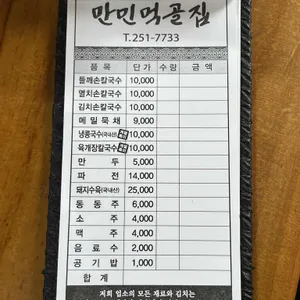 만민먹골집
T.251-7733
품 목 단 가 수 량 금 액
들깨손칼국수 10,000
멸치손칼국수 10,000
김치손칼국수 10,000
메 밀 묵 채 9,000
냉콩국수(국내산) 10,000
육개장칼국수 10,000
만 두 5,000
파 전 14,000
돼지수육(국내산) 25,000
동 동 주 6,000
소 주 4,000
맥 주 4,000
음 료 수 2,000
공 기 밥 1,000
합 계
저희 업소의 모든 재료와 김치는